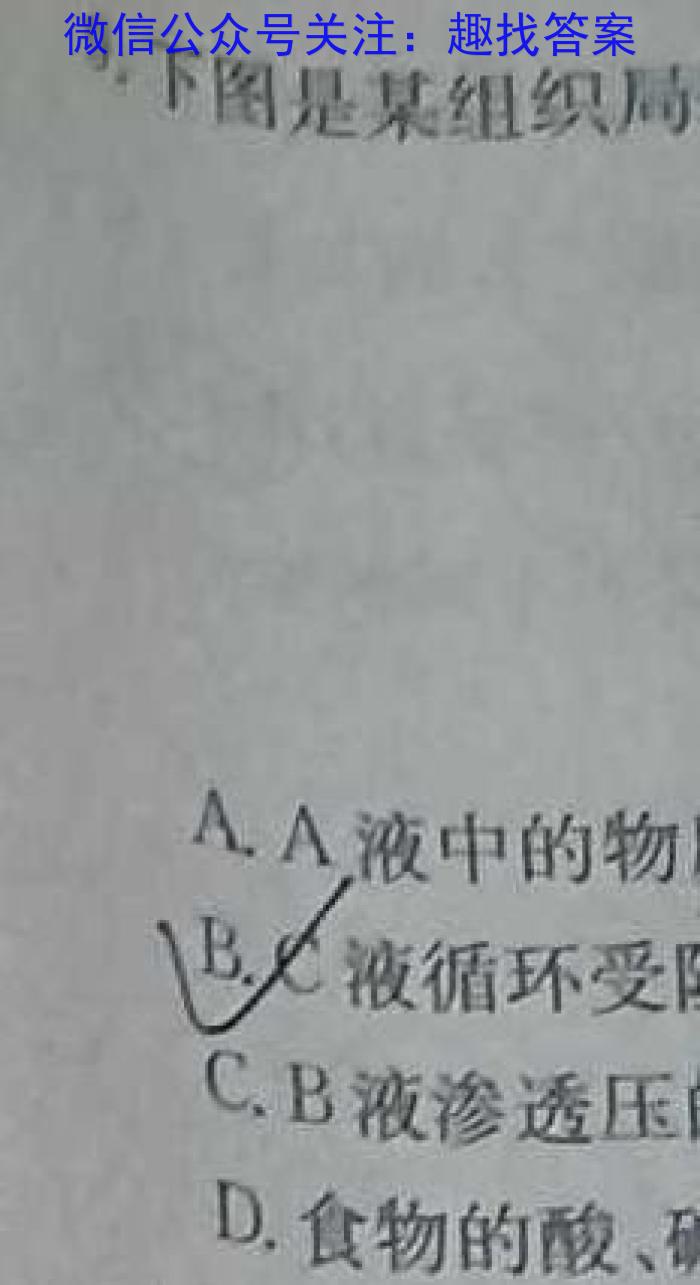 微信公众号关注：趣找答案
下图是某组织局
A. A 液中的物
B. C 液循环受
C. B 液渗透压
D. 食物的酸、